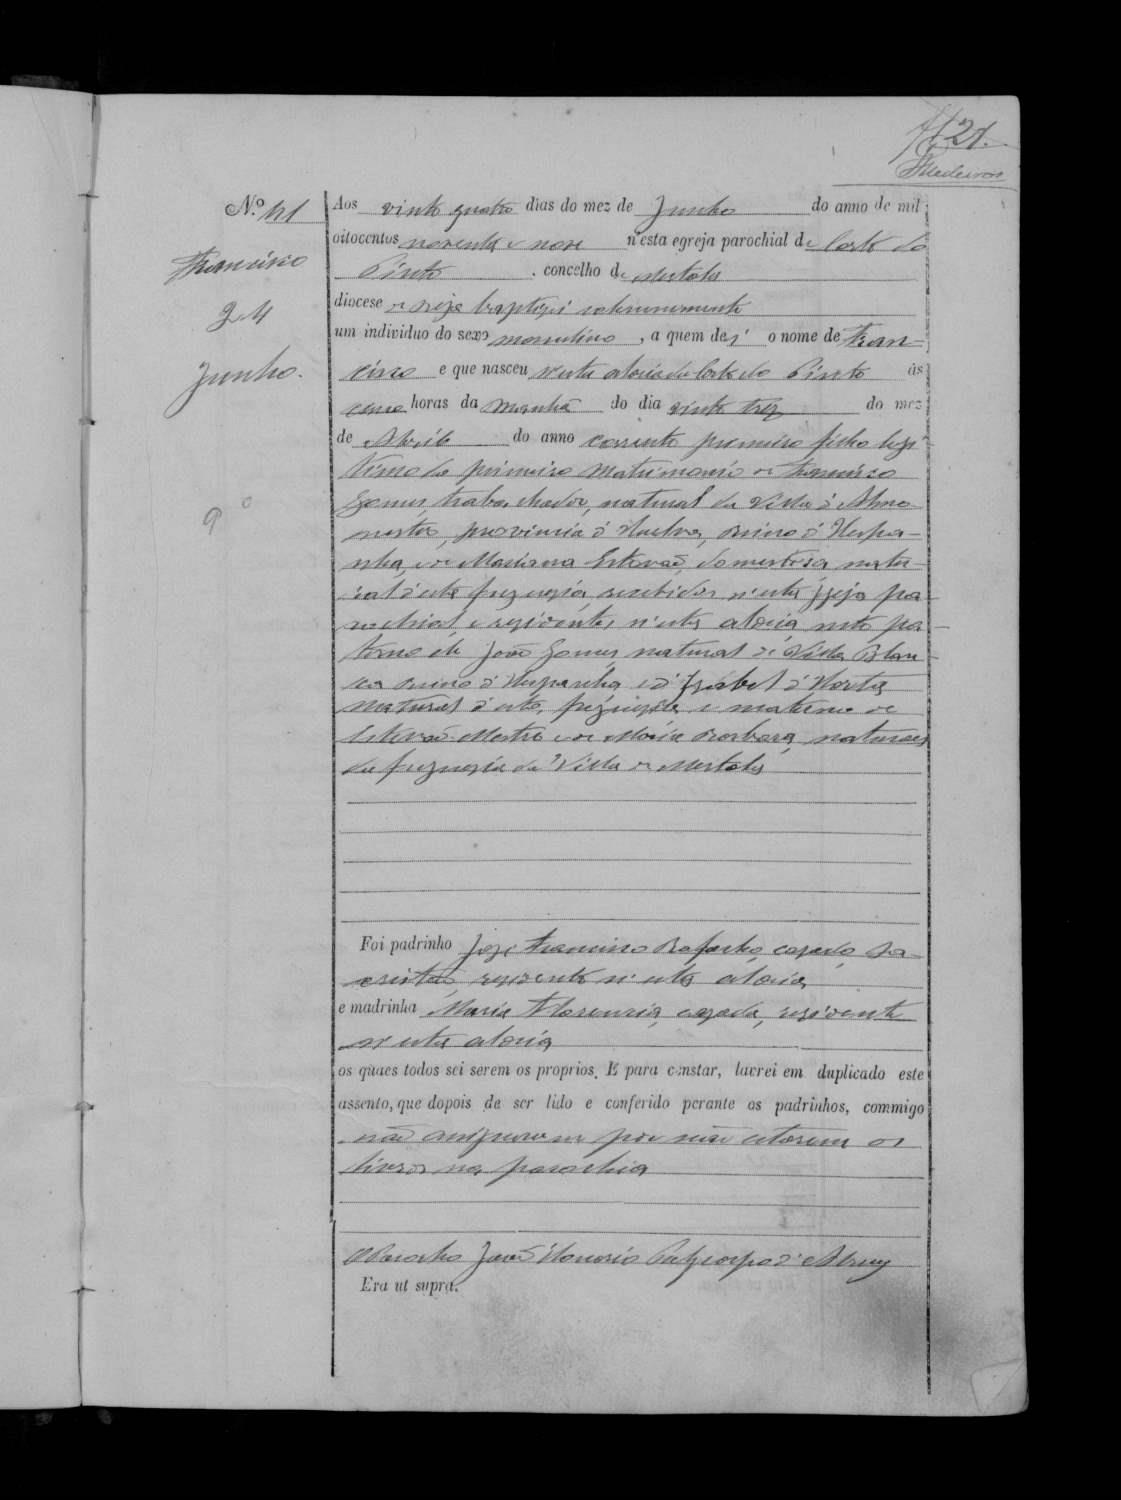 121.
Medeiros
N.º 41
Francisco
24
Junho.
Aos vinte quatro dias do mez de Junho do anno de mil
oitocentos noventa e nove n'esta egreja parochial de Corte do
Pinto, concelho de Mertola
diocese de Beja baptizei solemnemente
um individuo do sexo masculino, a quem dei o nome de Fran-
cisco e que nasceu nesta aldeia da Corte do Pinto ás
horas da manhã do dia vinte trez do mez
de Abril do anno corrente primeiro filho legi-
timo do primeiro matrimonio de Francisco
Gomes, trabalhador, natural da Villa d'Almo-
nester, provincia d'Huelva, Reino d'Hespa-
nha, e de Marianna Estevão, domestica, natu-
ral d'esta freguezia, recebidos n'esta Igreja pa-
rochial, e rezidentes n'esta aldeia, neto pa-
terno de João Gomes, natural de Villa Blan-
ca Reino d'Hespanha, e d'Izabel d'Horta
natural d'esta, freguezia e materno de
Estevão Mestre e de Maria Barbara, naturaes
da freguezia da Villa de Mertola
Foi padrinho José Francisco casado, Sa-
cristão, rezidente n'esta aldeia,
e madrinha Maria Florencia, cazada, rezidente
n'esta aldeia
os quaes todos sei serem os proprios. E para constar, lavrei em duplicado este
assento, que depois de ser lido e conferido perante os padrinhos, commigo
não assignaram por não estarem os
livros na parochia
O Parocho João Honorio d'Abreu
Era ut supra.